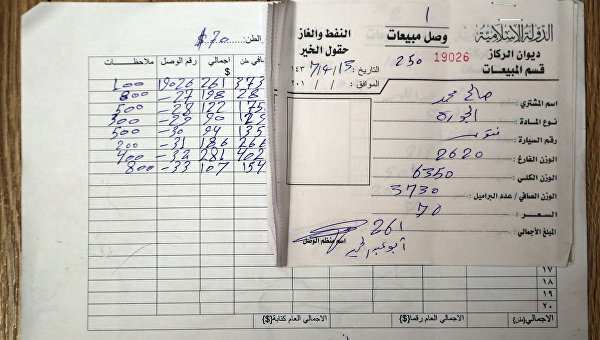 الدولة الإسلامية
ديوان الركاز
قسم المبيعات
١
وصل مبيعات
250 19026
النفط والغاز
حقول الخير
التاريخ: ١٤٣٧/4/15
الموافق: / / ٢٠١
اسم المشتري: صالح محمد
نوع المادة:
رقم السيارة:
الوزن الفارغ: 2620
الوزن الكلي: 6350
الوزن الصافي / عدد البراميل: 3730
السعر: 70
المبلغ الأجمالي: 261
اسم منظم الوصل
الطن: $70
صافي طن اجمالي $ رقم الوصل ملاحظات
373 261 19026
28 198 -27 800
175 122 -28 500
90 -29 300
135 94 -30 500
266 186 -31 200
402 281 -32 400
154 107 -33 800
١٧
١٨
١٩
٢٠
الاجمالي(طن) الاجمالي العام رقما{$} الاجمالي العام كتابة{$}